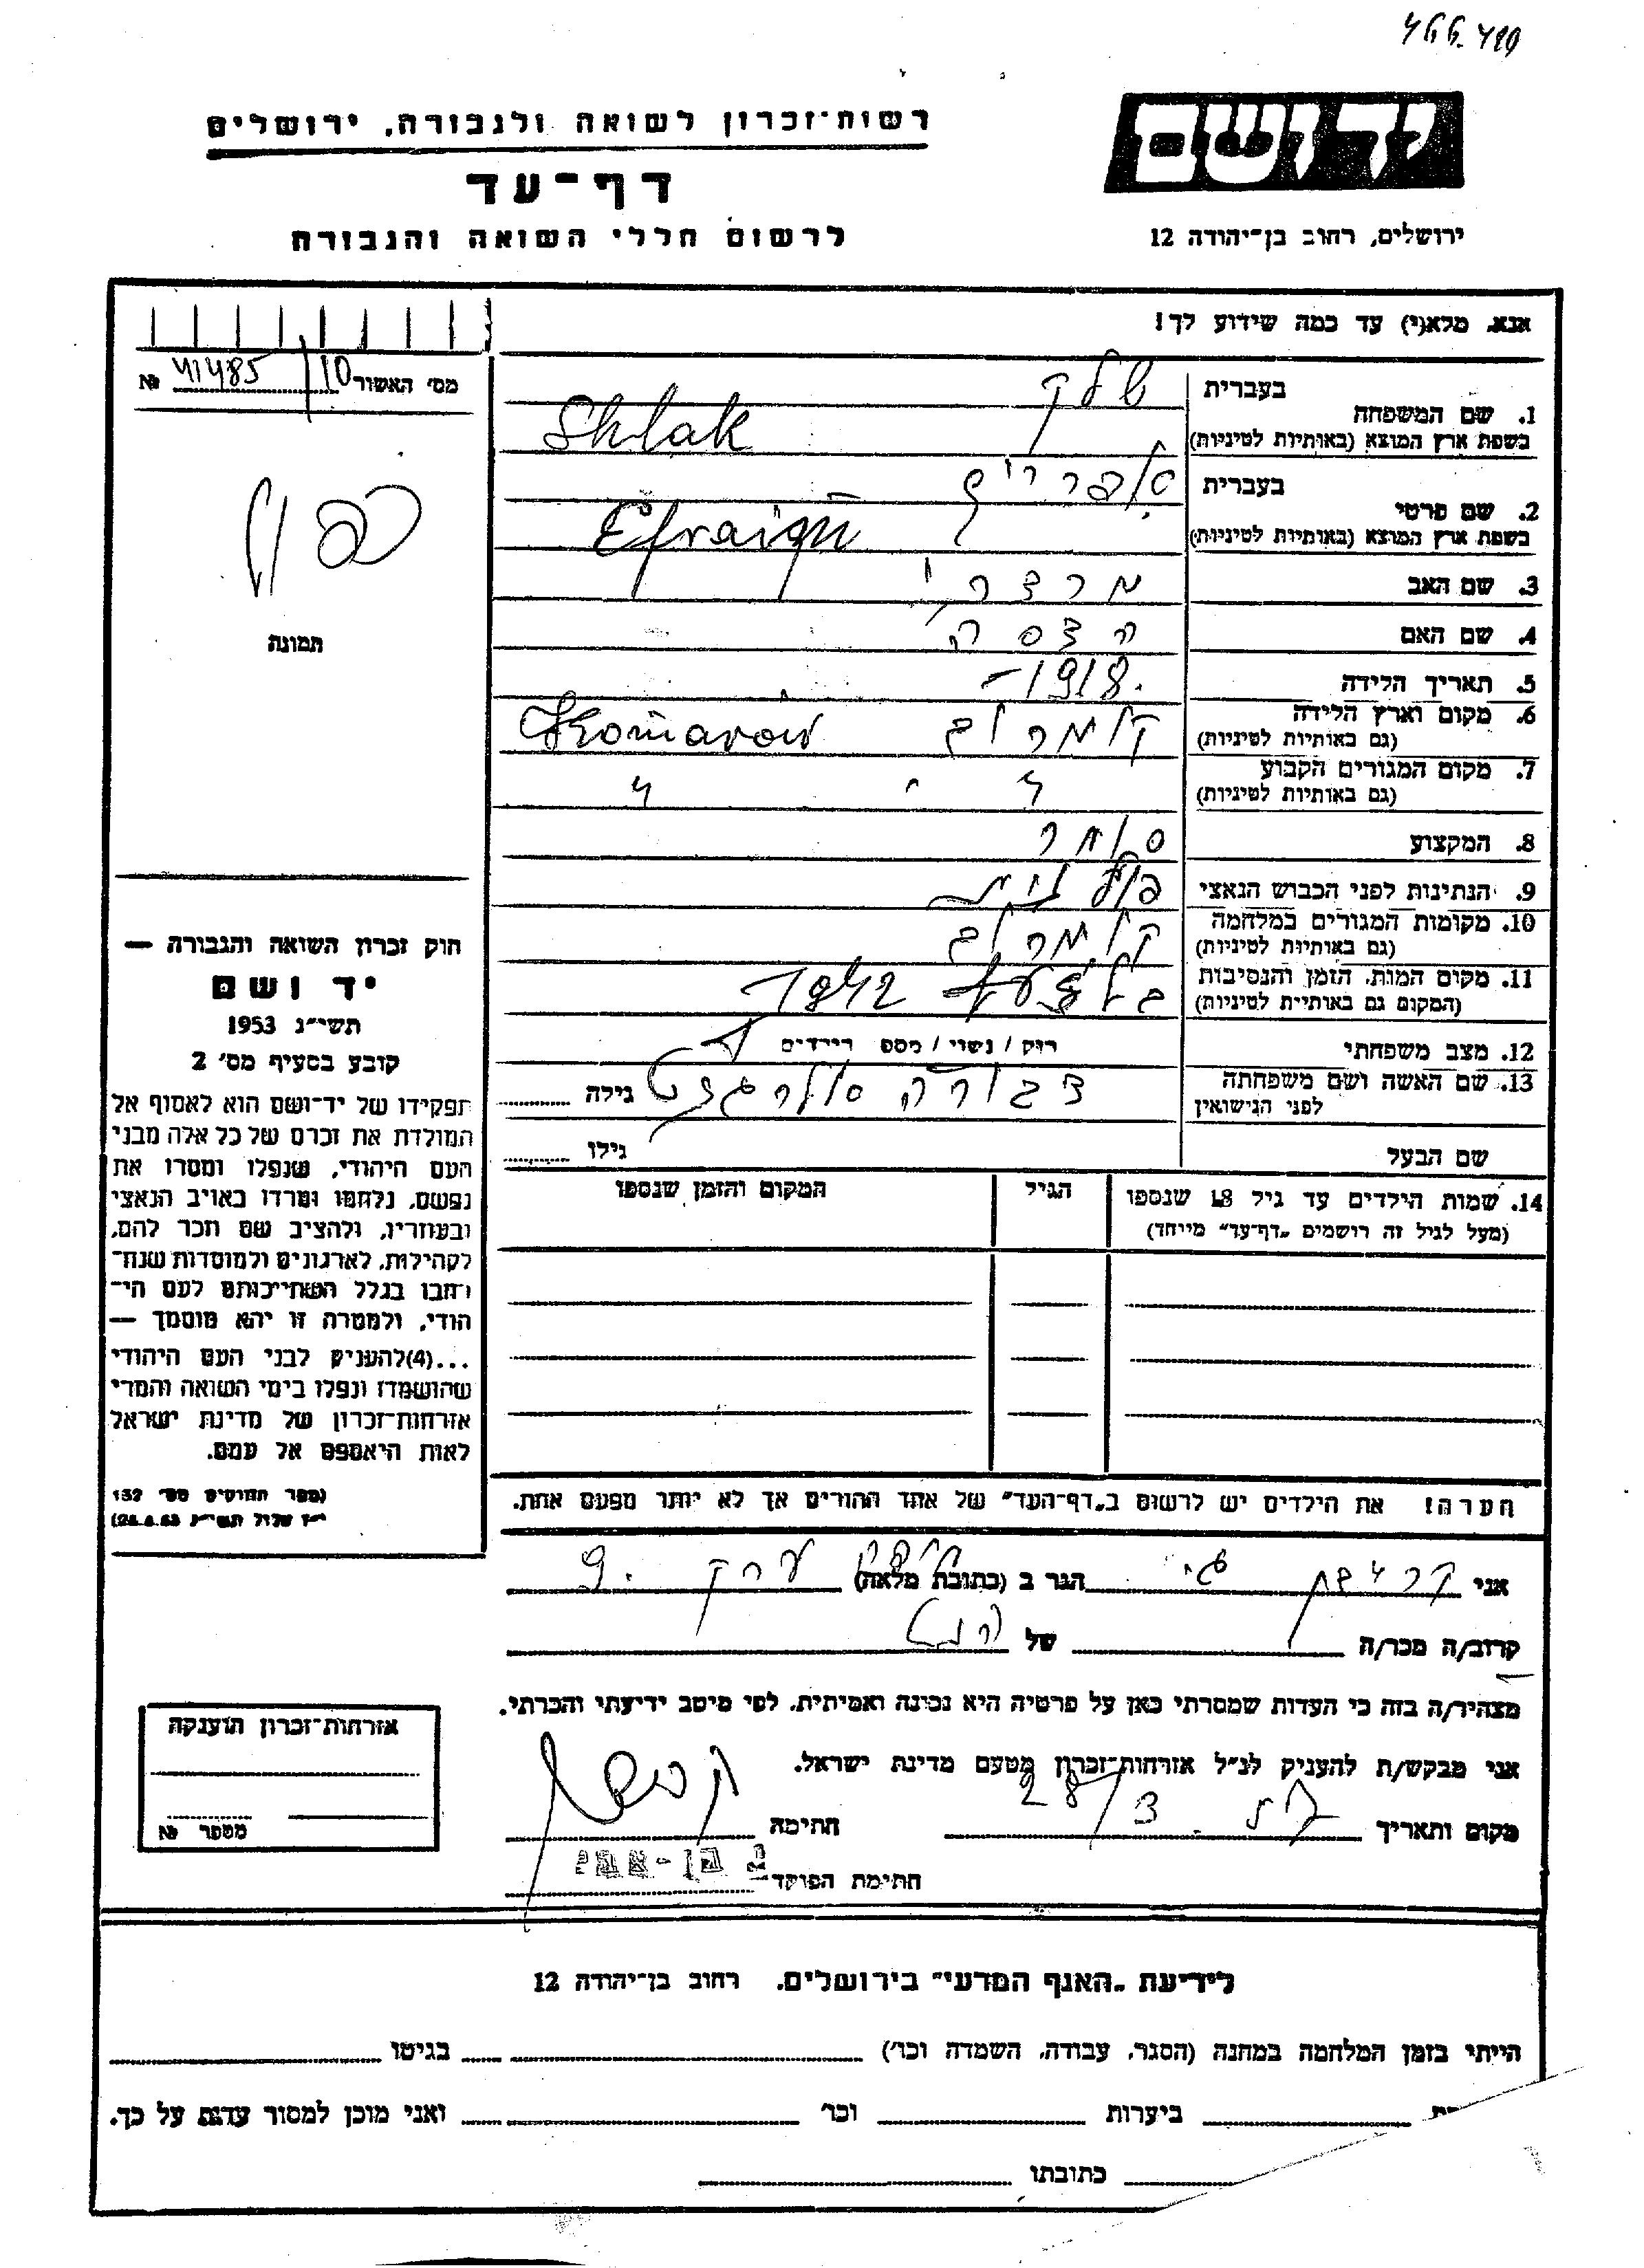 רשות־זכרון לשואה ולגבורה, ירושלים
דף־עד
לרשום חללי השואה והגבורה
ידושם
ירושלים, רחוב בן־יהודה 12
אנא, מלא(י) עד כמה שידוע לך!
מס׳ האשור 10/ 41485 №
1. שם המשפחה
בעברית שלק
בשפת ארץ המוצא (באותיות לטיניות) Shlak
2. שם פרטי
בעברית אפרים
בשפת ארץ המוצא (באותיות לטיניות) Efraim
3. שם האב מרדכי
4. שם האם הדסה
5. תאריך הלידה 1918
6. מקום וארץ הלידה
(גם באותיות לטיניות) קומרוב Komarow
7. מקום המגורים הקבוע
(גם באותיות לטיניות) " "
8. המקצוע סוחר
9. הנתינות לפני הכבוש הנאצי פולנית
10. מקומות המגורים במלחמה
(גם באותיות לטיניות) קומרוב
11. מקום המות, הזמן והנסיבות
(המקום גם באותיות לטיניות) 1942
12. מצב משפחתי רוק / נשוי / מספ הילדים
13. שם האשה ושם משפחתה
לפני הנישואין דבורה גילה
שם הבעל גילו
14. שמות הילדים עד גיל 18 שנספו
(מעל לגיל זה רושמים „דף־עד" מיוחד)
הגיל
המקום והזמן שנספו
הערה! את הילדים יש לרשום ב„דף־העד" של אחד ההורים אך לא יותר מפעם אחת.
תמונה
חוק זכרון השואה והגבורה —
יד ושם
תשי״ג 1953
קובע בסעיף מס׳ 2
תפקידו של יד־ושם הוא לאסוף אל
המולדת את זכרם של כל אלה מבני
העם היהודי, שנפלו ומסרו את
נפשם, נלחמו ומרדו באויב הנאצי
ובעוזריו, ולהציב שם וזכר להם,
לקהילות, לארגונים ולמוסדות שנח־
רבו בגלל השתייכותם לעם הי־
הודי, ולמטרה זו יהא מוסמך —
...(4)להעניק לבני העם היהודי
שהושמדו ונפלו בימי השואה והמרי
אזרחות־זכרון של מדינת ישראל
לאות היאספם אל עמם.
(ספר החוקים מס׳ 132
אני הגר ב (כתובת מלאה) 9
קרוב/ה מכר/ה של
מצהיר/ה בזה כי העדות שמסרתי כאן על פרטיה היא נכונה ואמיתית, לפי מיטב ידיעתי והכרתי.
אני מבקש/ת להעניק לנ״ל אזרחות־זכרון מטעם מדינת ישראל.
מקום ותאריך 28/3 חתימה
חתימת הפוקד
אזרחות־זכרון הוענקה
מספר №
לידיעת „האגף המדעי" בירושלים. רחוב בן־יהודה 12
הייתי בזמן המלחמה במחנה (הסגר, עבודה, השמדה וכר׳) בגיטו
ביערות וכר׳ ואני מוכן למסור עדות על כך.
כתובתו